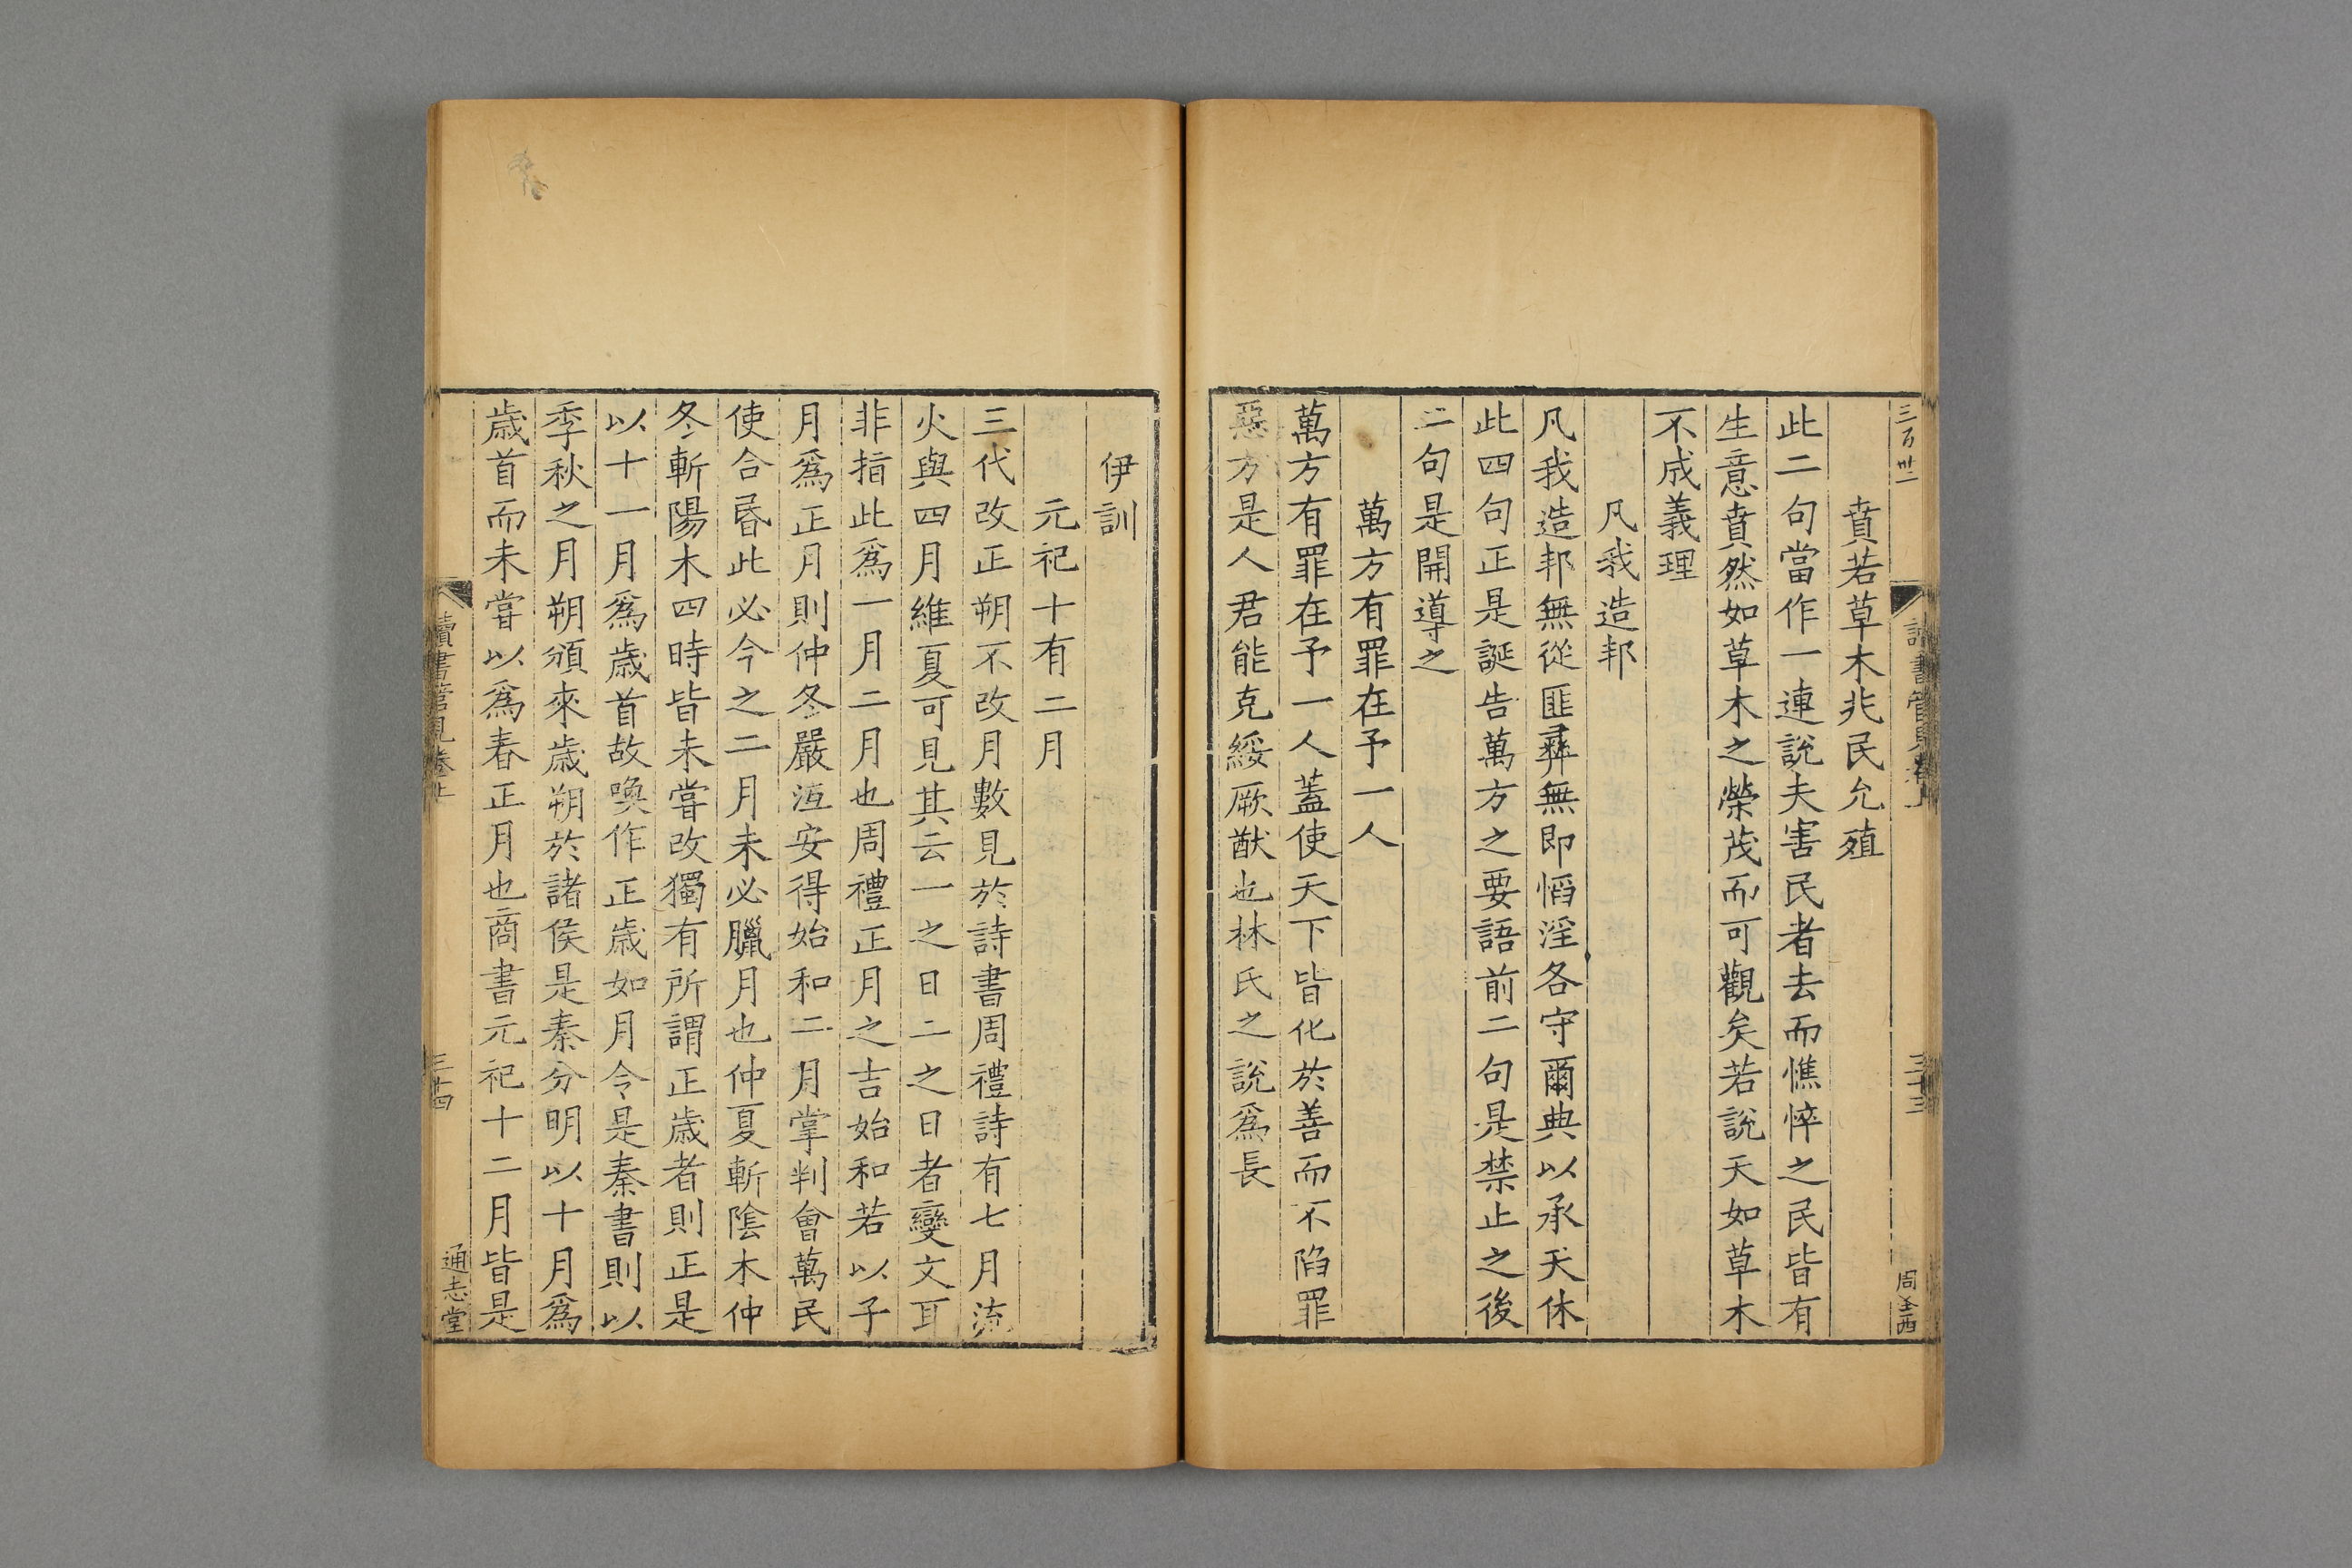 三百卅一
賁若草木兆民允殖
此二句當作一連說夫害民者去而憔悴之民皆有
生意賁然如草木之榮茂而可觀矣若說天如草木
不成義理
凡我造邦
凡我造邦無從匪彝無即慆淫各守爾典以承天休
此四句正是誕告萬方之要語前二句是禁止之後
二句是開導之
萬方有罪在予一人
萬方有罪在予一人蓋使天下皆化於善而不陷罪
惡方是人君能克綏厥猷也林氏之說爲長
書管見卷上
三十三
周全西
伊訓
元祀十有二月
三代改正朔不改月數見於詩書周禮詩有七月流
火與四月維夏可見其云一之日二之日者變文耳
非指此爲一月二月也周禮正月之吉始和若以子
月爲正月則仲冬嚴沍安得始和二月掌判會萬民
使合昏此必今之二月未必臘月也仲夏斬陰木仲
冬斬陽木四時皆未嘗改獨有所謂正歲者則正是
以十一月爲歲首故喚作正歲如月令是秦書則以
季秋之月朔頒來歲朔於諸侯是秦分明以十月爲
歲首而未嘗以爲春正月也商書元祀十二月皆是
讀書管見卷上
三十四
通志堂